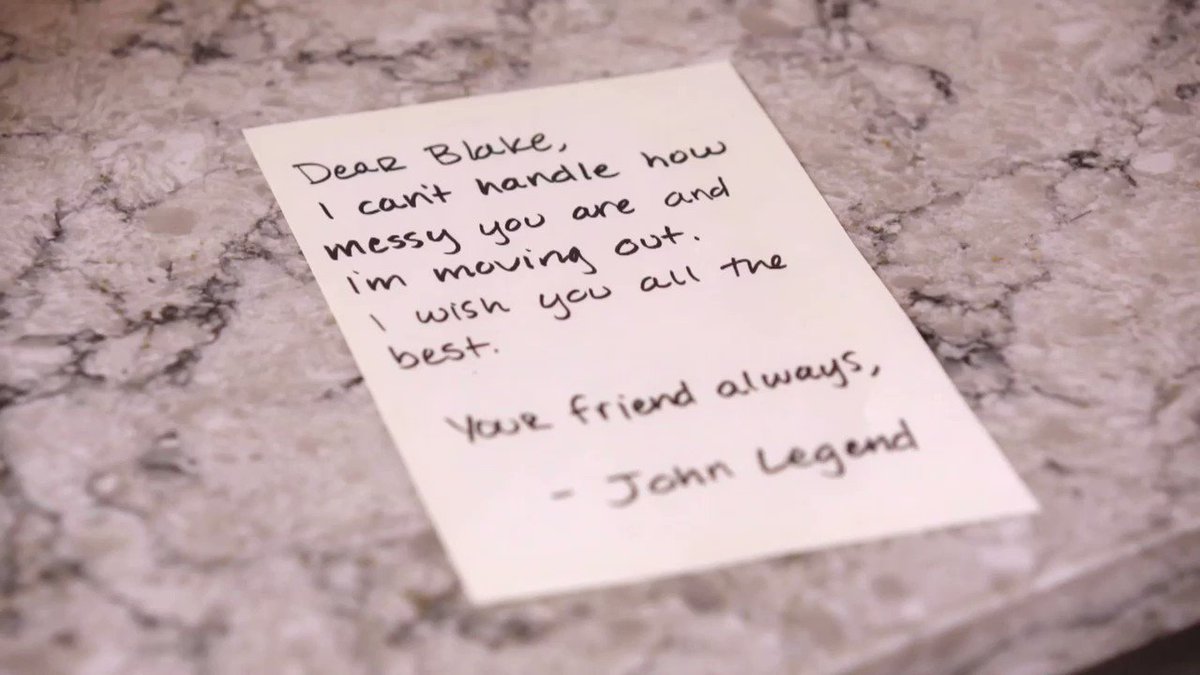 Dear Blake,
I can't handle how
messy you are and
i'm moving out.
I wish you all the
best.
Your friend always,
- John Legend